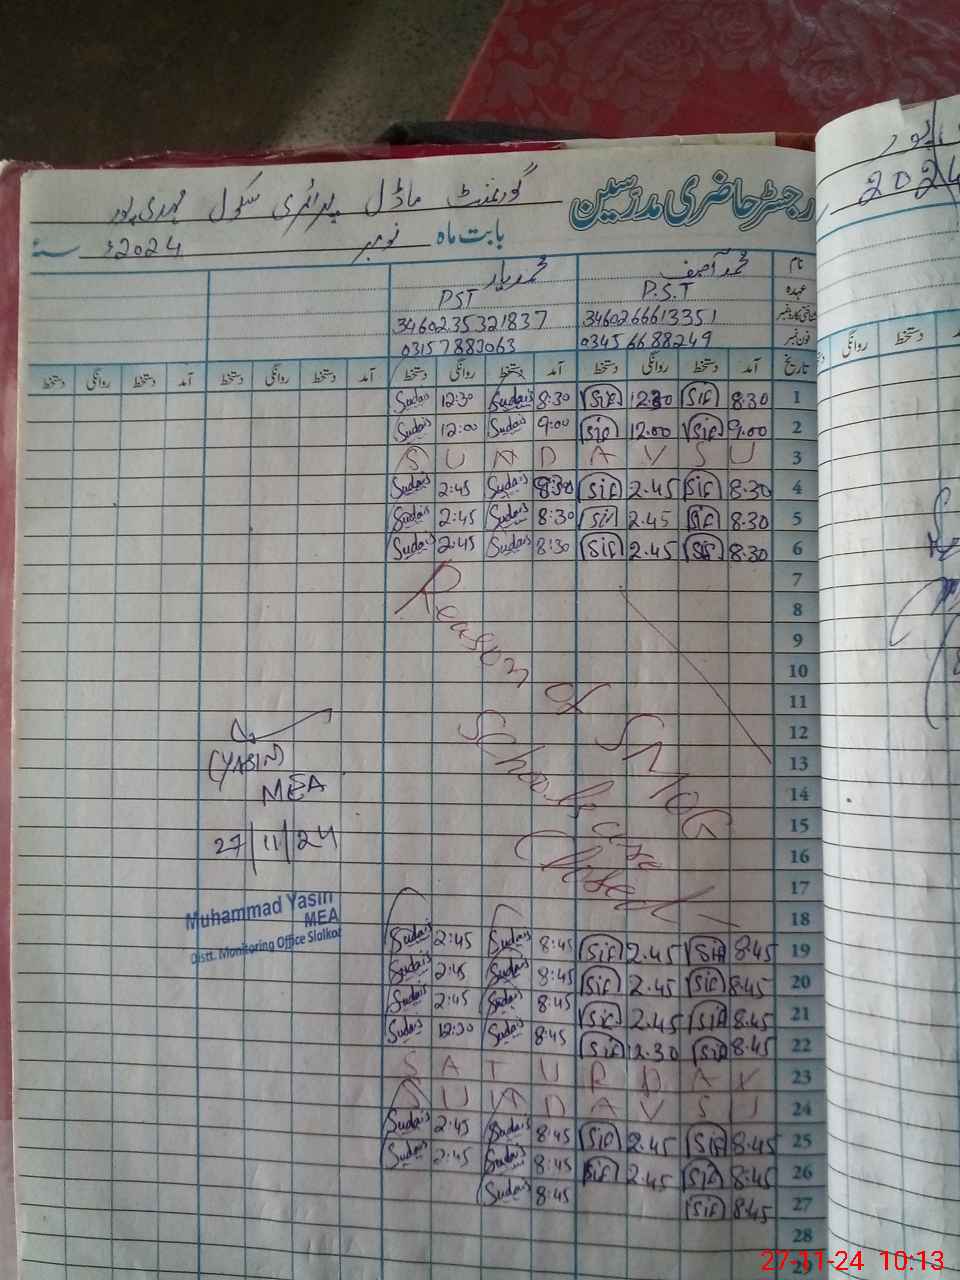 رجسٹر حاضری مدرسین گورنمنٹ ماڈل پرائمری سکول
بابت ماہ نومبر 2024ء سنہ
نام محمد آصف محمد
عہدہ P.S.T PST
3460266613351 3460235321837
فون نمبر 03456688249 03157883063
تاریخ آمد دستخط روانگی دستخط آمد دستخط روانگی دستخط آمد دستخط روانگی دستخط آمد دستخط روانگی دستخط
Sudais 12:30 Sudais 8:30 Sif 12.30 Sif 8.30 1
Sudais 12:00 Sudais 9:00 Sif 12.00 Sif 9.00 2
S U N D A Y S U 3
Sudais 2:45 Sudais 8:30 Sif 2.45 Sif 8.30 4
Sudais 2:45 Sudais 8:30 Sif 2.45 Sif 8.30 5
Sudais 2:45 Sudais 8:30 Sif 2.45 Sif 8.30 6
7
8
9
10
11
12
13
14
15
16
17
18
Reason of SMOG
Schools are
Closed
(YASIN)
MEA
27/11/24
Muhammad Yasin
MEA
Distt. Monitoring Office Sialkot
Sudais 2:45 Sudais 8:45 Sif 2.45 Sif 8.45 19
Sudais 2:45 Sudais 8:45 Sif 2.45 Sif 8.45 20
Sudais 2:45 Sudais 8:45 Sif 2.45 Sif 8.45 21
Sudais 12:30 Sudais 8:45 Sif 12.30 Sif 8.45 22
S A T U R D A Y 23
S U N D A Y S U 24
Sudais 2:45 Sudais 8:45 Sif 2.45 Sif 8.45 25
Sudais 2:45 Sudais 8:45 Sif 2.45 Sif 8.45 26
Sudais 8:45 Sif 8.45 27
28
29
2024
روانگی دستخط
27-11-24 10:13